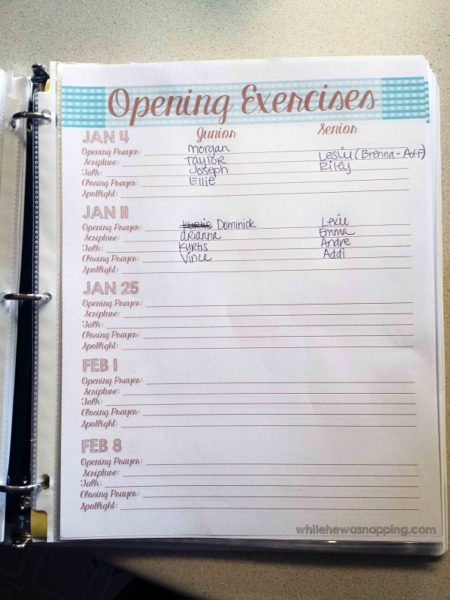 Opening Exercises
Junior Senior
JAN 4
Opening Prayer: Morgan
Scripture: Taylor Leslie (Brenna-Aff)
Talk: Joseph Riley
Closing Prayer: Ellie
JAN 11
Opening Prayer: Kurtis Dominick Lexie
Scripture: Arianna Emma
Talk: Kurtis Andre
Closing Prayer: Vince Addi
Spotlight:
JAN 25
Opening Prayer:
Scripture:
Talk:
Closing Prayer:
Spotlight:
FEB 1
Opening Prayer:
Scripture:
Talk:
Closing Prayer:
Spotlight:
FEB 8
Opening Prayer:
Scripture:
Talk:
Closing Prayer:
Spotlight:
whilehewasnapping.com